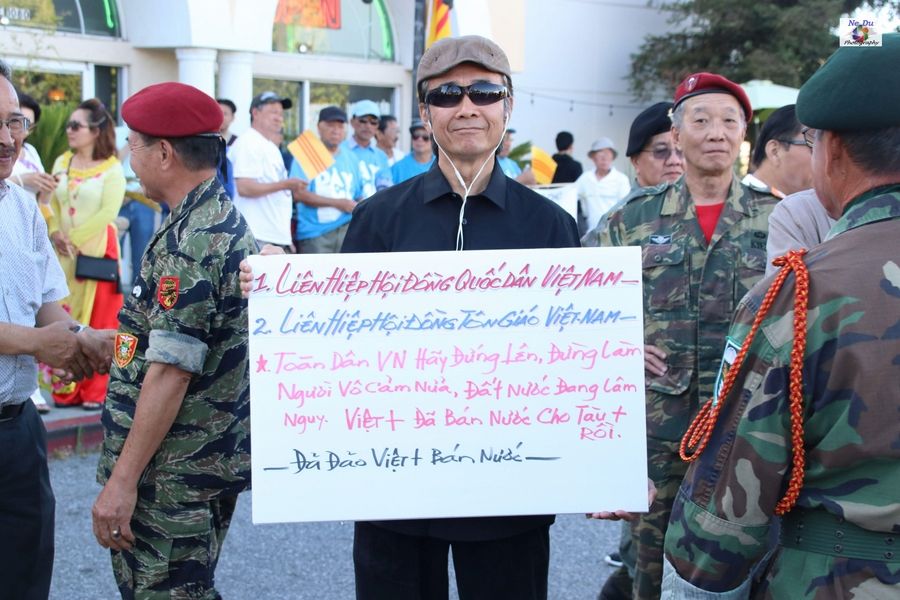 Ne Du
Photography
8080
1. LIÊN HIỆP HỘI ĐỒNG QUỐC DÂN VIỆT NAM –
2. LIÊN HIỆP HỘI ĐỒNG TÔN GIÁO VIỆT-NAM –
* TOÀN DÂN VN HÃY ĐỨNG LÊN, ĐỪNG LÀM
NGƯỜI VÔ CẢM NỮA, ĐẤT NƯỚC ĐANG LÂM
NGUY. VIỆT+ ĐÃ BÁN NƯỚC CHO TÀU+
RỒI.
– ĐẢ ĐẢO VIỆT+ BÁN NƯỚC –